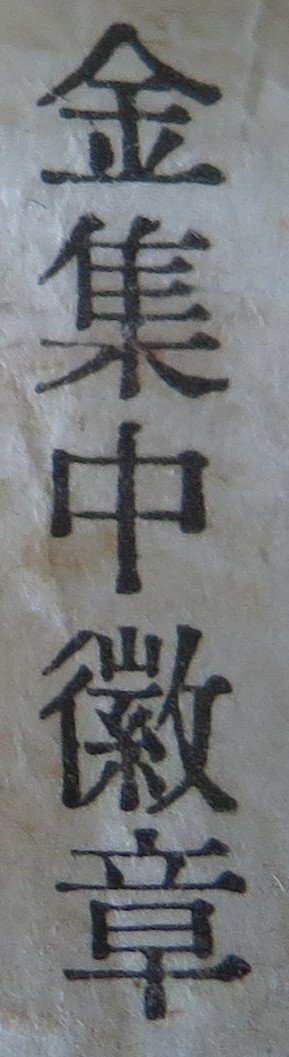 金集中徽章